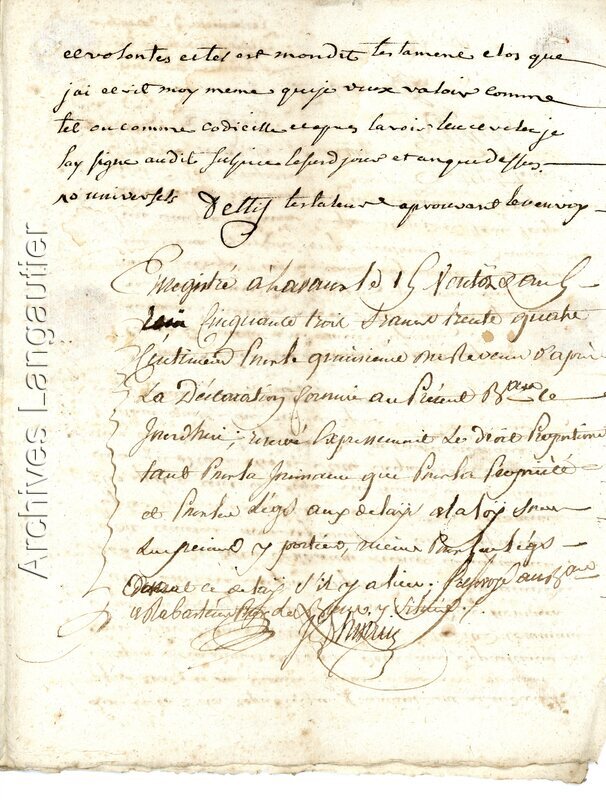 et volontes et tel est mondit testament clos que
jai ecrit moy meme que je veux valoir comme
tel ou comme codicille et apres lavoir leu et releu je
lay signe audit Sulpice lesurd jour et an que dessus
ro universels Detty testateur aprouvant le renvoy
Enregistré à Lavaur le 15 Ventôse an 5
Cinquante trois francs trente quatre
Centimes Pour le quinsième du Revenu d'après
La Déclaration fournie au Présent Bau ce
Jourdhui; reservé Expressement Le Droit Proportione
tant Pour la que Pour la Propriété
et Pour les Légs aux delays et la loy
y portées, même Pour les Légs
ce delay s'il y a lieu. au Bau
de Rabastens
Archives Langautier